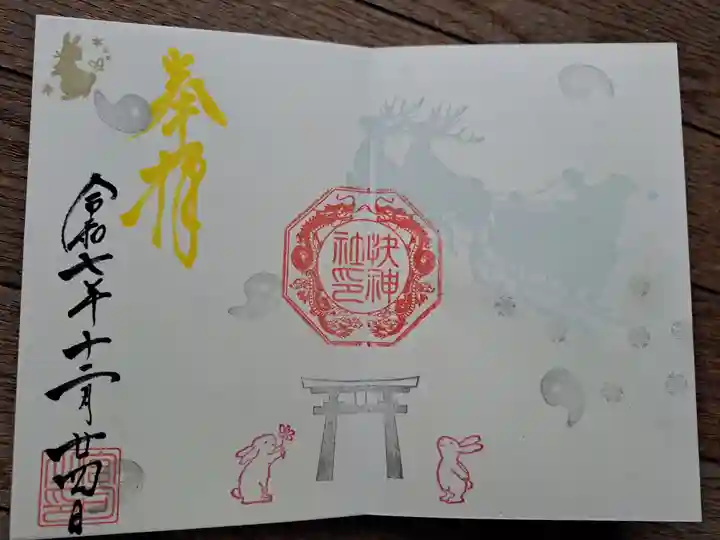 神
社印
奉拝
令和七年十二月廿四日